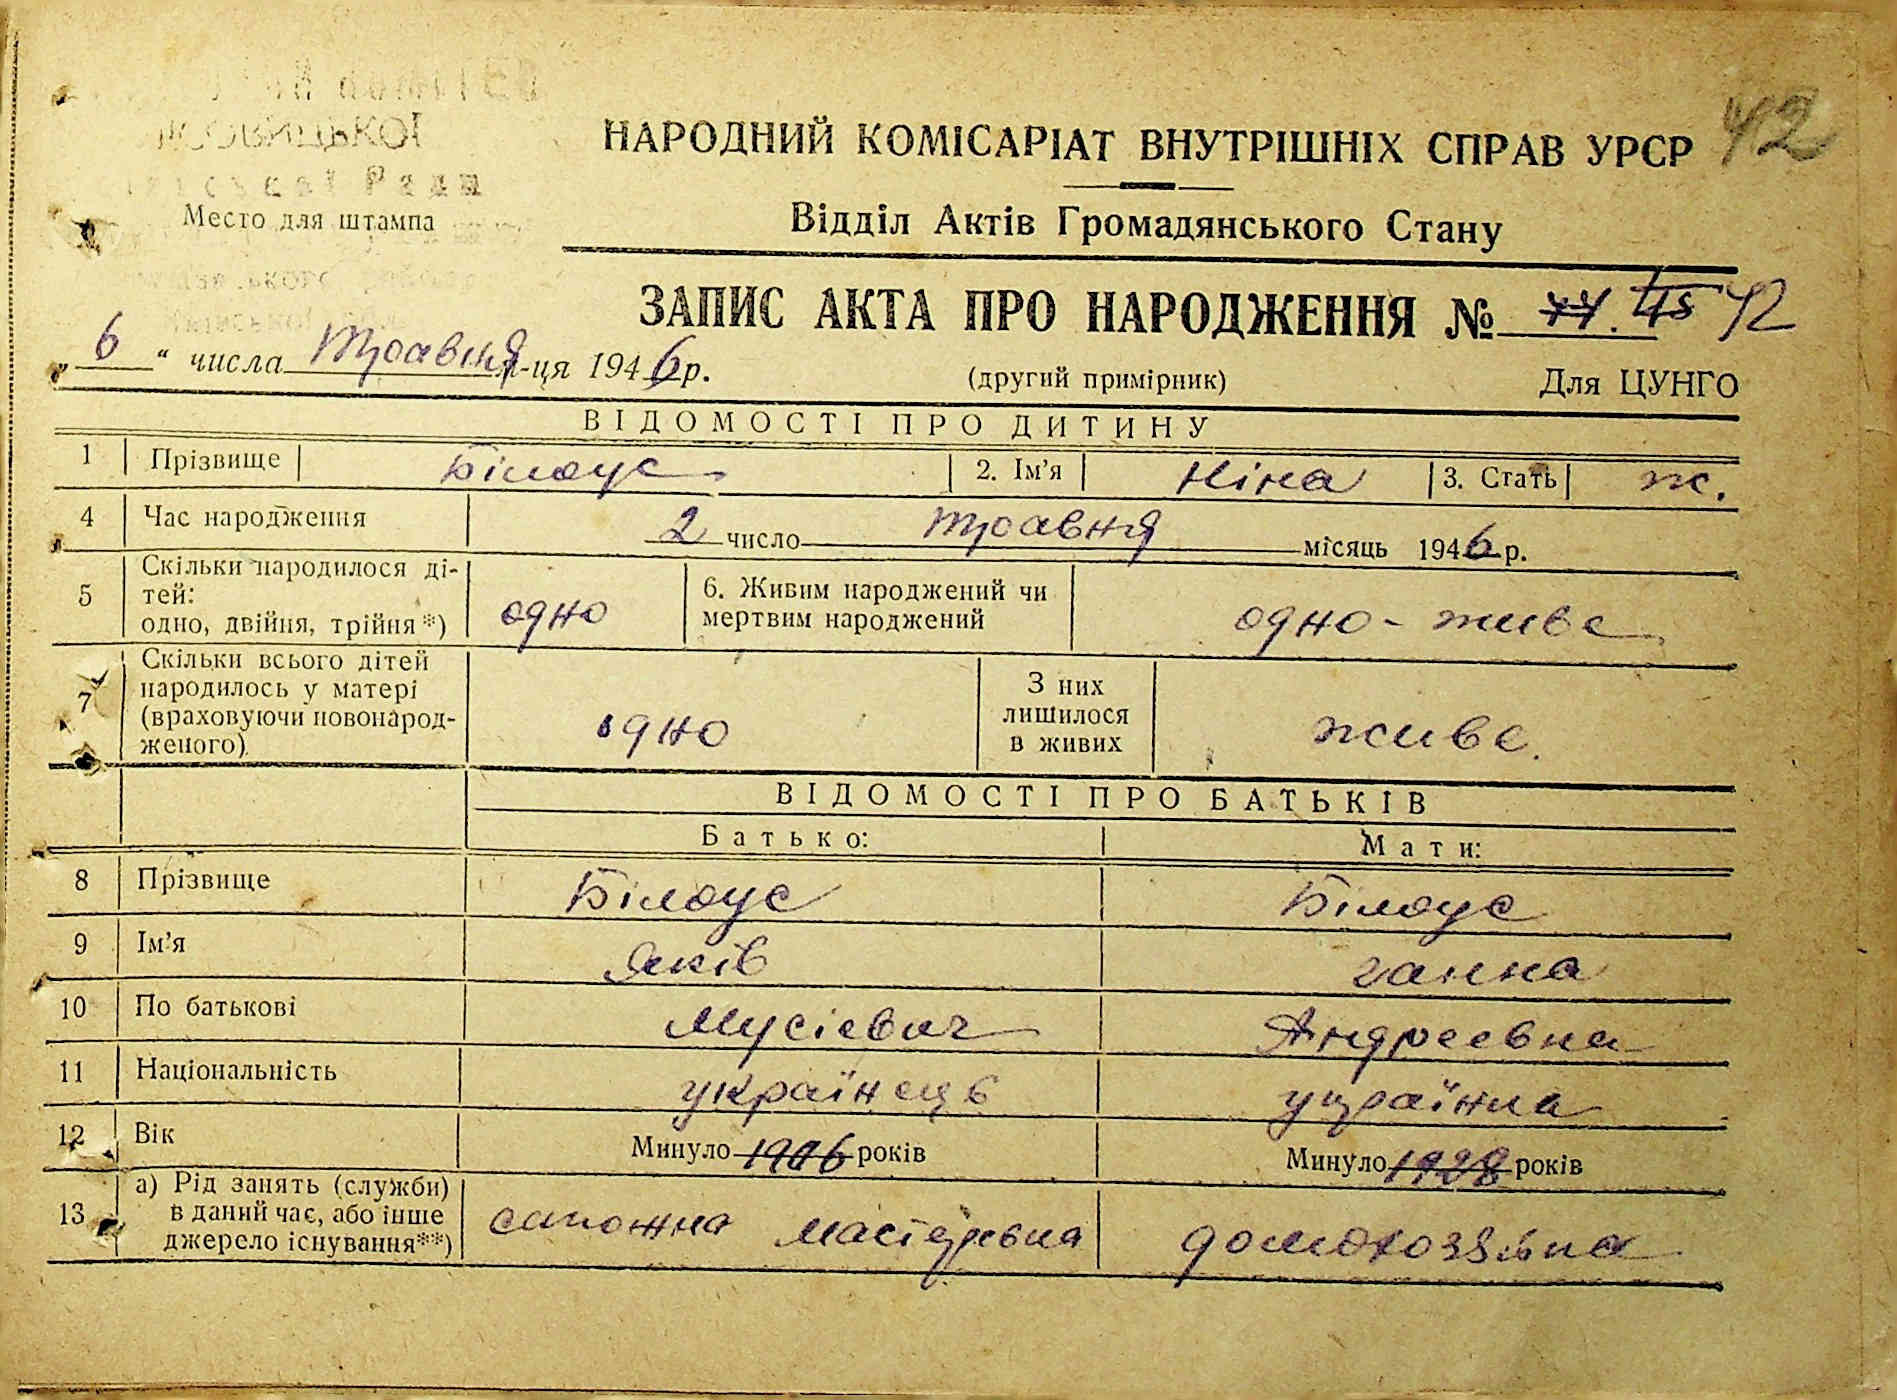 42
НАРОДНИЙ КОМІСАРІАТ ВНУТРІШНІХ СПРАВ УРСР
Место для штампа
Відділ Актів Громадянського Стану
ЗАПИС АКТА ПРО НАРОДЖЕННЯ № 42
„6“ числа травня м-ця 1946 р.
(другий примірник)
Для ЦУНГО
ВІДОМОСТІ ПРО ДИТИНУ
1 Прізвище Білоус 2. Ім’я Ніна 3. Стать ж.
4 Час народження 2 число травня місяць 1946 р.
5 Скільки народилося ді-
тей:
одно, двійня, трійня*) одно 6. Живим народжений чи
мертвим народжений одно - живе
7 Скільки всього дітей
народилось у матері
(враховуючи новонарод-
женого). одно З них
лишилося
в живих живе.
ВІДОМОСТІ ПРО БАТЬКІВ
Батько: Мати:
8 Прізвище Білоус Білоус
9 Ім’я Яків Ганна
10 По батькові Мусієвич Андреевна
11 Національність українець українка
12 Вік Минуло 1906 років Минуло 1928 років
13 а) Рід занять (служби)
в даний час, або інше
джерело існування**) сапожна домохозяйка